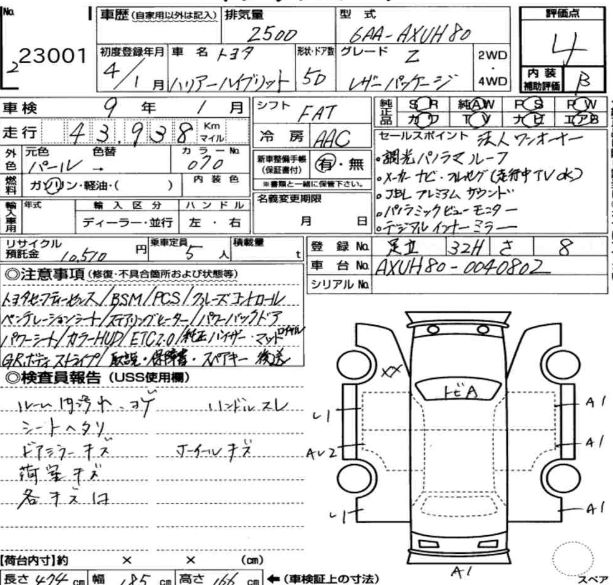 No.
23001
2
車歴 (自家用以外は記入)
排気量
2500
型式
6AA-AXUH80
評価点
4
内装
補助評価
B
初度登録年月
4/1月
車名
トヨタ
ハリアーハイブリット
形状・ドア数
5D
グレード
Z
レザーパッケージ
2WD
・
4WD
車検
9年1月
シフト
FAT
走行
43,938
Km
マイル
冷房
AAC
純正品
SR 純AW PS PW
カワ TV ナビ エアB
外色
元色
色替
パール →
カラーNo.
070
燃料
ガソリン・軽油・( )
内装色
新車整備手帳
(保証書付)
有・無
※書類と一緒に保管下さい。
セールスポイント 法人ワンオーナー
・調光パノラマルーフ
・メーカーナビ・フルセグ(走行中TVOK)
・JBLプレミアムサウンド
・パノラミックビューモニター
・デジタルインナーミラー
輸入車用
年式
輸入区分
ハンドル
ディーラー・並行
左・右
名義変更期限
月 日
リサイクル
預託金
10,510円
乗車定員
5人
積載量
t
登録No.
足立 32H さ 8
車台No.
AXUH80-0040802
シリアルNo.
◎注意事項 (修復・不具合箇所および状態等)
トヨタセーフティーセンス/BSM/PCS/クルーズコントロール
ベンチレーションシート/ステアリングヒーター/パワーバックドア
パワーシート/カラーHUD/ETC2.0/純正バイザー・マット
GRボディストライプ/取説・保障書・スペアキー 後送
◎検査員報告 (USS使用欄)
ハンドルスレ
シートヘタリ
ドアミラーキズ ホイールキズ
荷室キズ
各キズ凹
××
トビA
L1
A1
A1
L1
A1
A1
スペア
【荷台内寸】約 × × (cm)
長さ 474 cm 幅 185 cm 高さ 166 cm ←(車検証上の寸法)